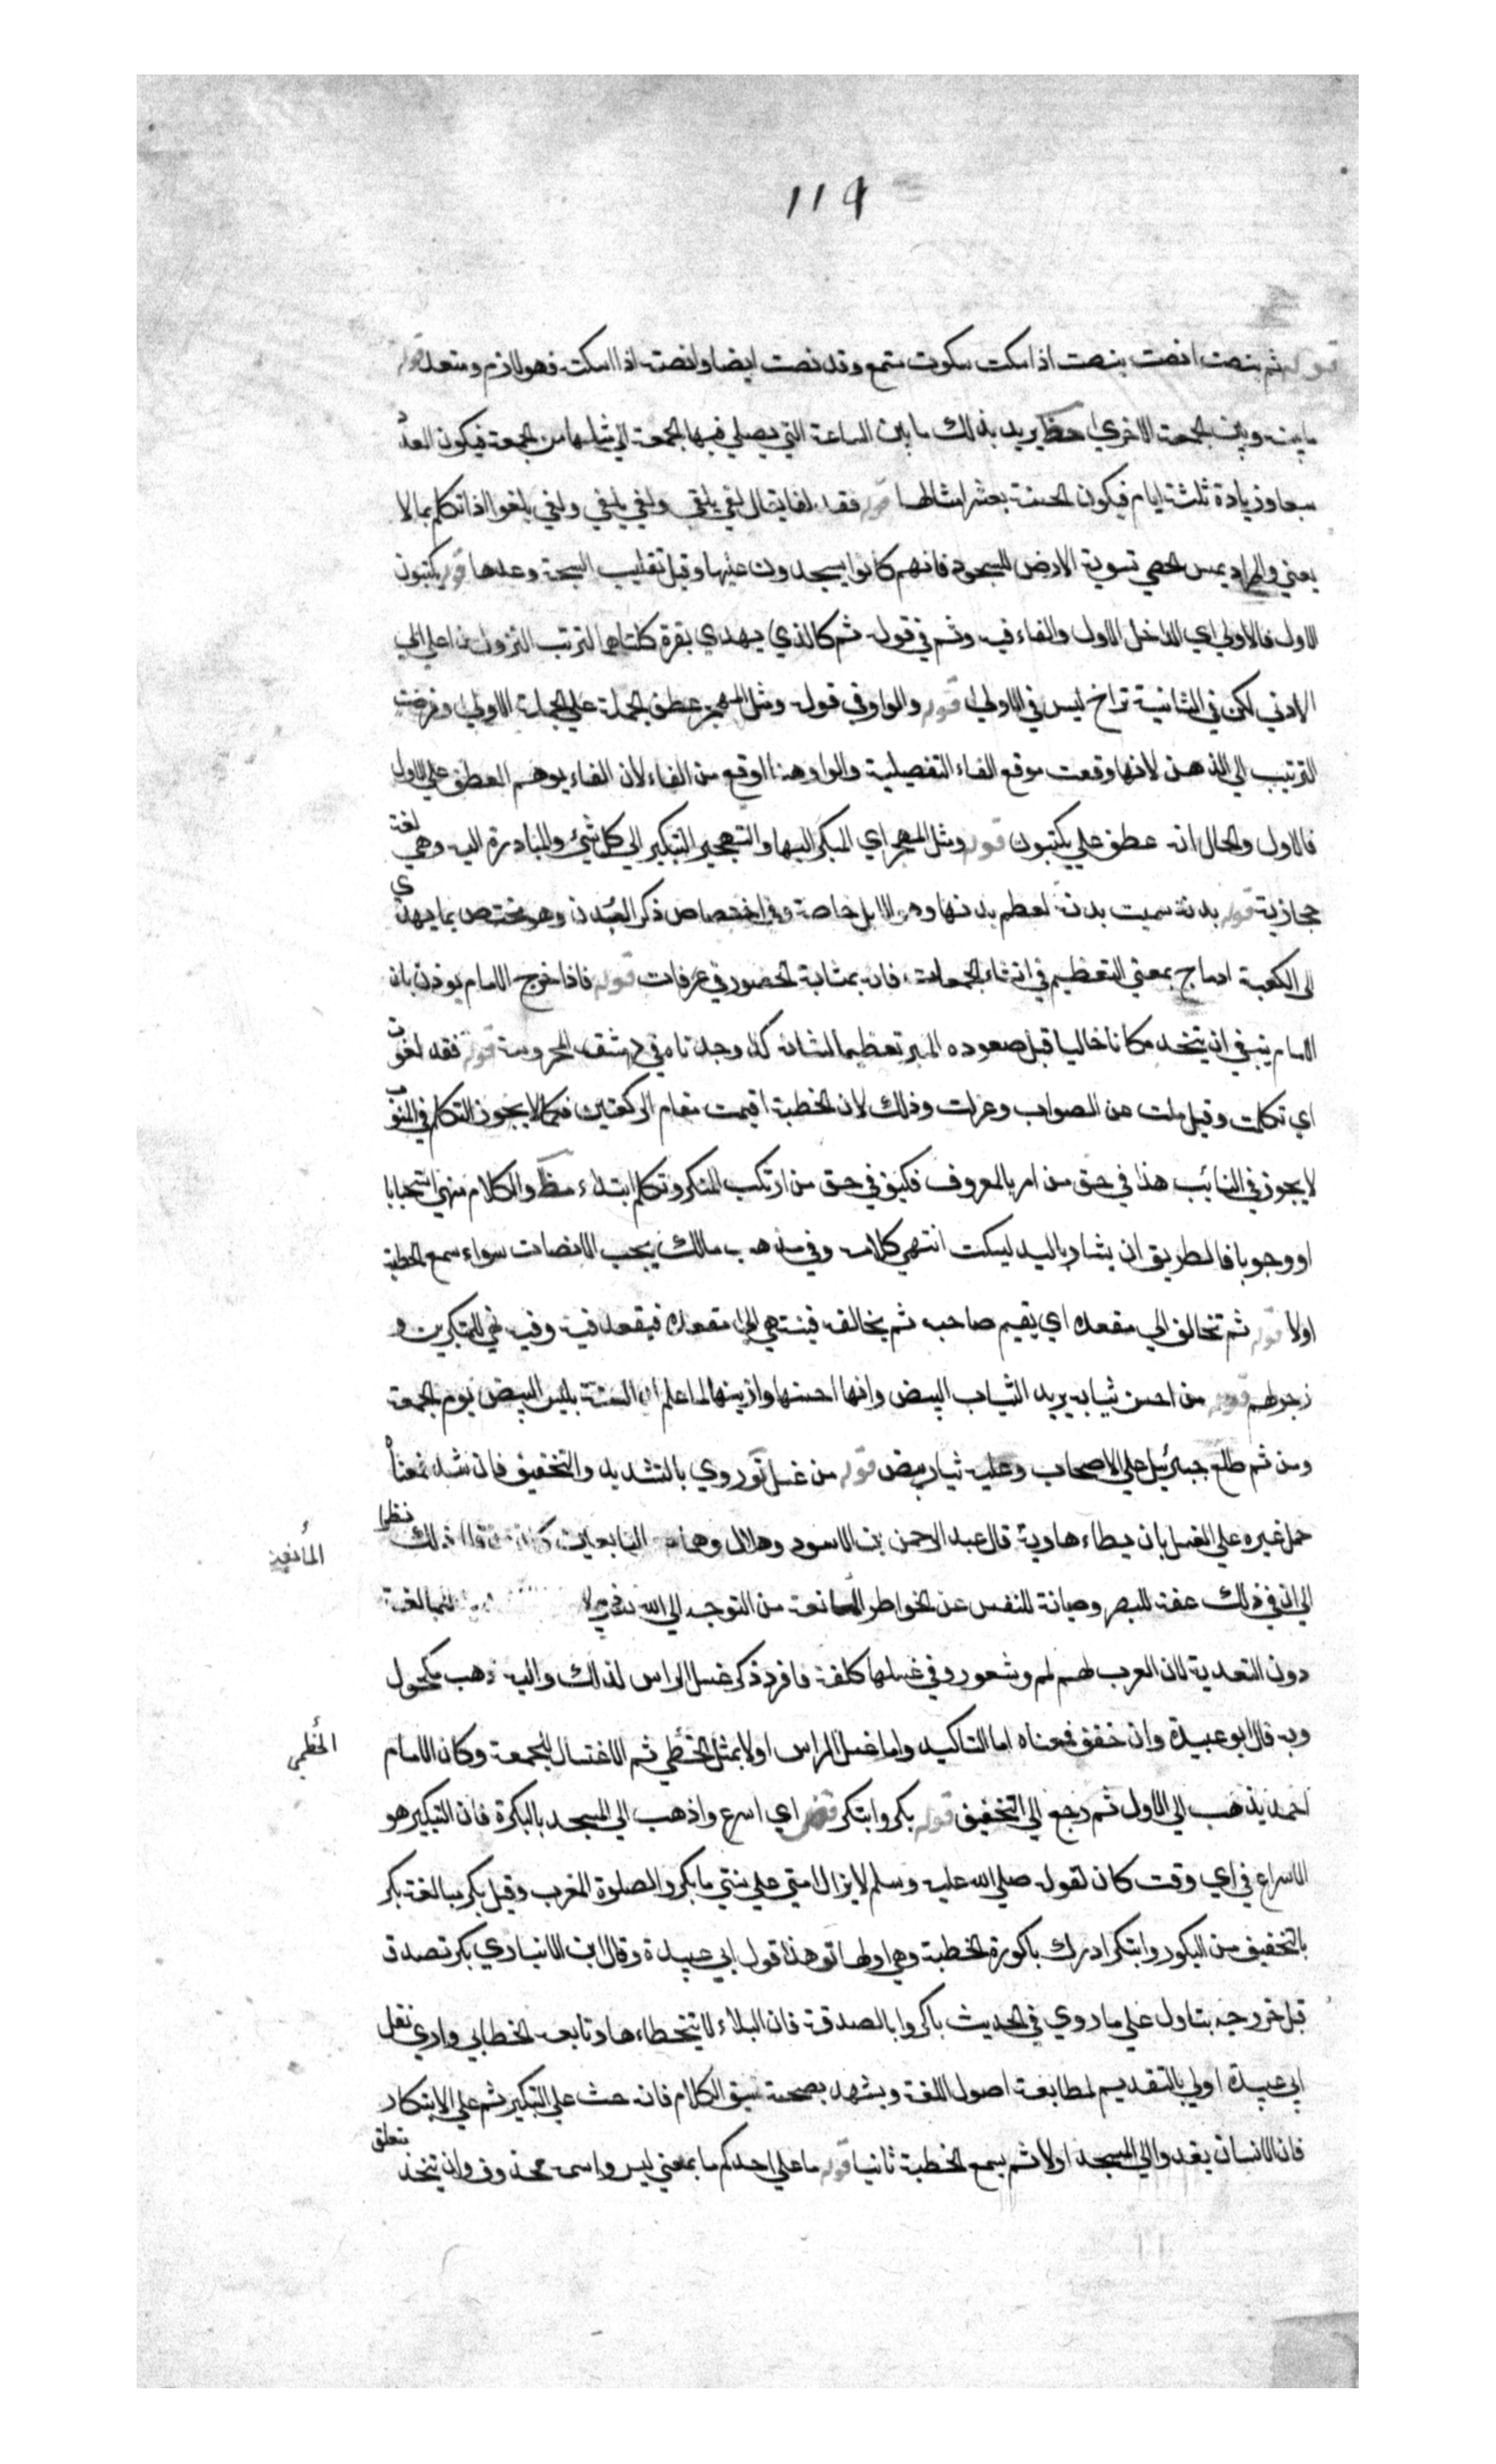 ١١٩
قوله ثم ينصت انصت ينصت اذا سكت سكوت مستمع وقد نصت ايضا وانصته اذا اسكته فهو لازم ومتعد قوله
ما بينه وبين الجمعة الاخرى يريد بذلك ما بين الساعة التي يصلي فيها الجمعة الي مثلها من الجمعة فيكون العدد
سبعا وزيادة ثلثة ايام فيكون الحسنة بعشر امثالها قوله فقد لغا يقال لغي يلغي ولغي يلغي ولغي يلغوا اذا تكلم بما لا
يعني والمراد بمس الحصي تسوية الارض للسجود فانهم كانوا يسجدون عليها وقيل تقليب السبحة وعدها قوله يكتبون
الاول فالاول اي الداخل الاول والفاء فيه وثم في قوله ثم كالذي يهدي بقرة كلتاهما لترتب النزول من اعلي الي
الادني لكن في الثانية تراخ ليس في الاولي قوله والواو في قوله ومثل المهجر عطف الجملة علي الجملة الاولي وفوضت
الترتيب الي الذهن لانها وقعت موقع الفاء التفصيلية والواو هنا اوقع من الفاء لان الفاء يوهم العطف علي الاول
فالاول والحال انه عطف علي يكتبون قوله ومثل المهجر اي المبكر اليها والتهجير التبكير الي كل شيئ والمبادرة اليه وهي لغة
حجازية قوله بدنة سميت بدنة لعظم بدنها وهي الابل خاصة وفي اختصاص ذكر البدن وهو مختص بما يهدي
الي الكعبة ادماج بمعني التعظيم في انشاء الجمعات فانه بمثابة الحضور في عرفات قوله فاذا خرج الامام يوذن بان
الامام ينبغي ان يتخذ مكانا خاليا قبل صعوده المنبر تعظيما لشانه كذا وجدناه في دمشق المحروسة قوله فقد لغوت
اي تكلمت وقيل ملت عن الصواب وعزلت وذلك لان الخطبة اقيمت مقام الركعتين فكما لا يجوز التكلم في المنوب
لا يجوز في النائب هذا في حق من امر بالمعروف فكيف في حق من ارتكب المنكر وتكلم ابتداء والكلام منهي استحبابا
او وجوبا فالطريق ان يشار باليد ليسكت انتهي كلامه وفي مذهب مالك يجب الانصات سواء سمع الخطبة
اولا قوله ثم تخالف الي مقعده اي يقيم صاحبه ثم يخالف فينتهي الي مقعده فيقعد فيه وفيه المتكبرين و
زجرهم قوله من احسن ثيابه يريد الثياب البيض وانها احسنها وازينها لما علم ان السنة بلبس البيض يوم الجمعة
ومن ثم طلع جبرئيل علي الاصحاب وعليه ثياب بيض قوله من غسل روي بالتشديد والتخفيف فان شدد فمعناه
حمل غيره علي الغسل بان يطاءها وبه قال عبد الرحمن بن الاسود وهلال وهما من التابعين ذلك نظرا
المانعة
الي ان في ذلك عفة للبصر وصيانة للنفس عن الخواطر المانعة من التوجه الي الله للمبالغة
دون التعدية لان العرب لهم لمم وشعور وفي غسلها كلفة فافرد ذكر غسل الراس لذلك واليه ذهب مكحول
وبه قال ابو عبيدة وان خفف فمعناه اما التاكيد واما غسل الراس اولا بمثل الخطمي ثم الاغتسال للجمعة وكان الامام
الخطمي
احمد يذهب الي الاول ثم رجع الي التخفيف قوله بكر وابتكر اي اسرع واذهب الي المسجد بالبكرة فان التبكير هو
الاسراع في اي وقت كان لقوله صلي الله عليه وسلم لا يزال امتي علي سنتي ما بكروا لصلوة المغرب وقيل بكر مبالغة بكر
بالتخفيف من البكور وابتكر ادرك باكورة الخطبة وهي اولها وهذا قول ابي عبيدة وقال ابن الانباري بكر تصدق
قبل خروجه يتاول علي ما روي في الحديث باكروا بالصدقة فان البلاء لا يتخطاءها وتابعه الخطابي واري نقل
ابي عبيدة اولي بالتقديم لمطابقة اصول اللغة ويشهد بصحته نسق الكلام فانه حث علي التبكير ثم علي الابتكار
فان الانسان يغدو الي المسجد اولا ثم يسمع الخطبة ثانيا قوله ما علي احدكم ما بمعني ليس واسمه محذوف وان يتخذ متعلق